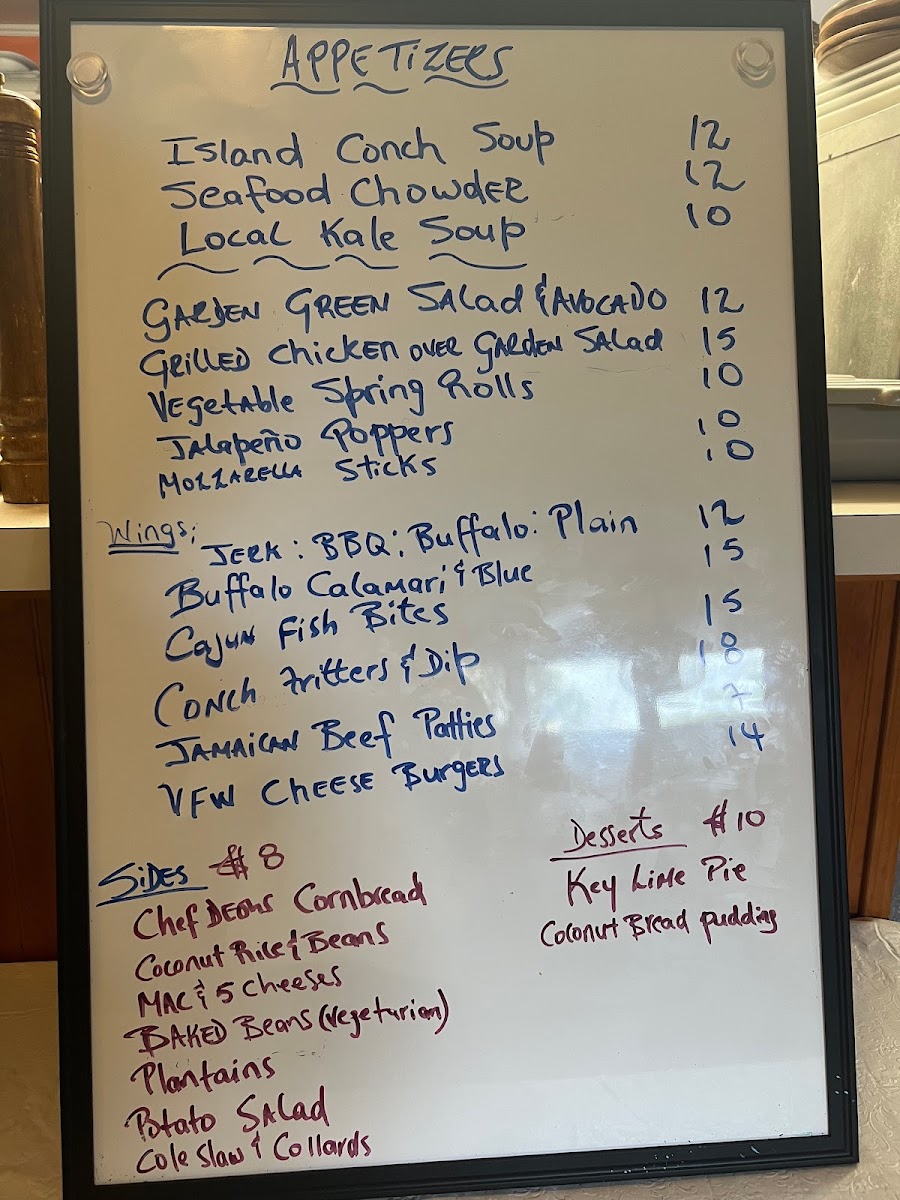 APPETIZERS
Island Conch Soup 12
Seafood Chowder 12
Local Kale Soup 10
Garden Green Salad & Avocado 12
Grilled Chicken over Garden Salad 15
Vegetable Spring Rolls 10
Jalapeño Poppers 10
Mozzarella Sticks 10
Wings; Jerk: BBQ; Buffalo: Plain 12
Buffalo Calamari & Blue 15
Cajun Fish Bites 15
Conch Fritters & Dip 18
Jamaican Beef Patties 7
VFW Cheese Burgers 14
Sides $8
Chef Deons Cornbread
Coconut Rice & Beans
Mac & 5 Cheeses
Baked Beans (Vegeturian)
Plantains
Potato Salad
Cole Slaw & Collards
Desserts $10
Key Lime Pie
Coconut Bread pudding